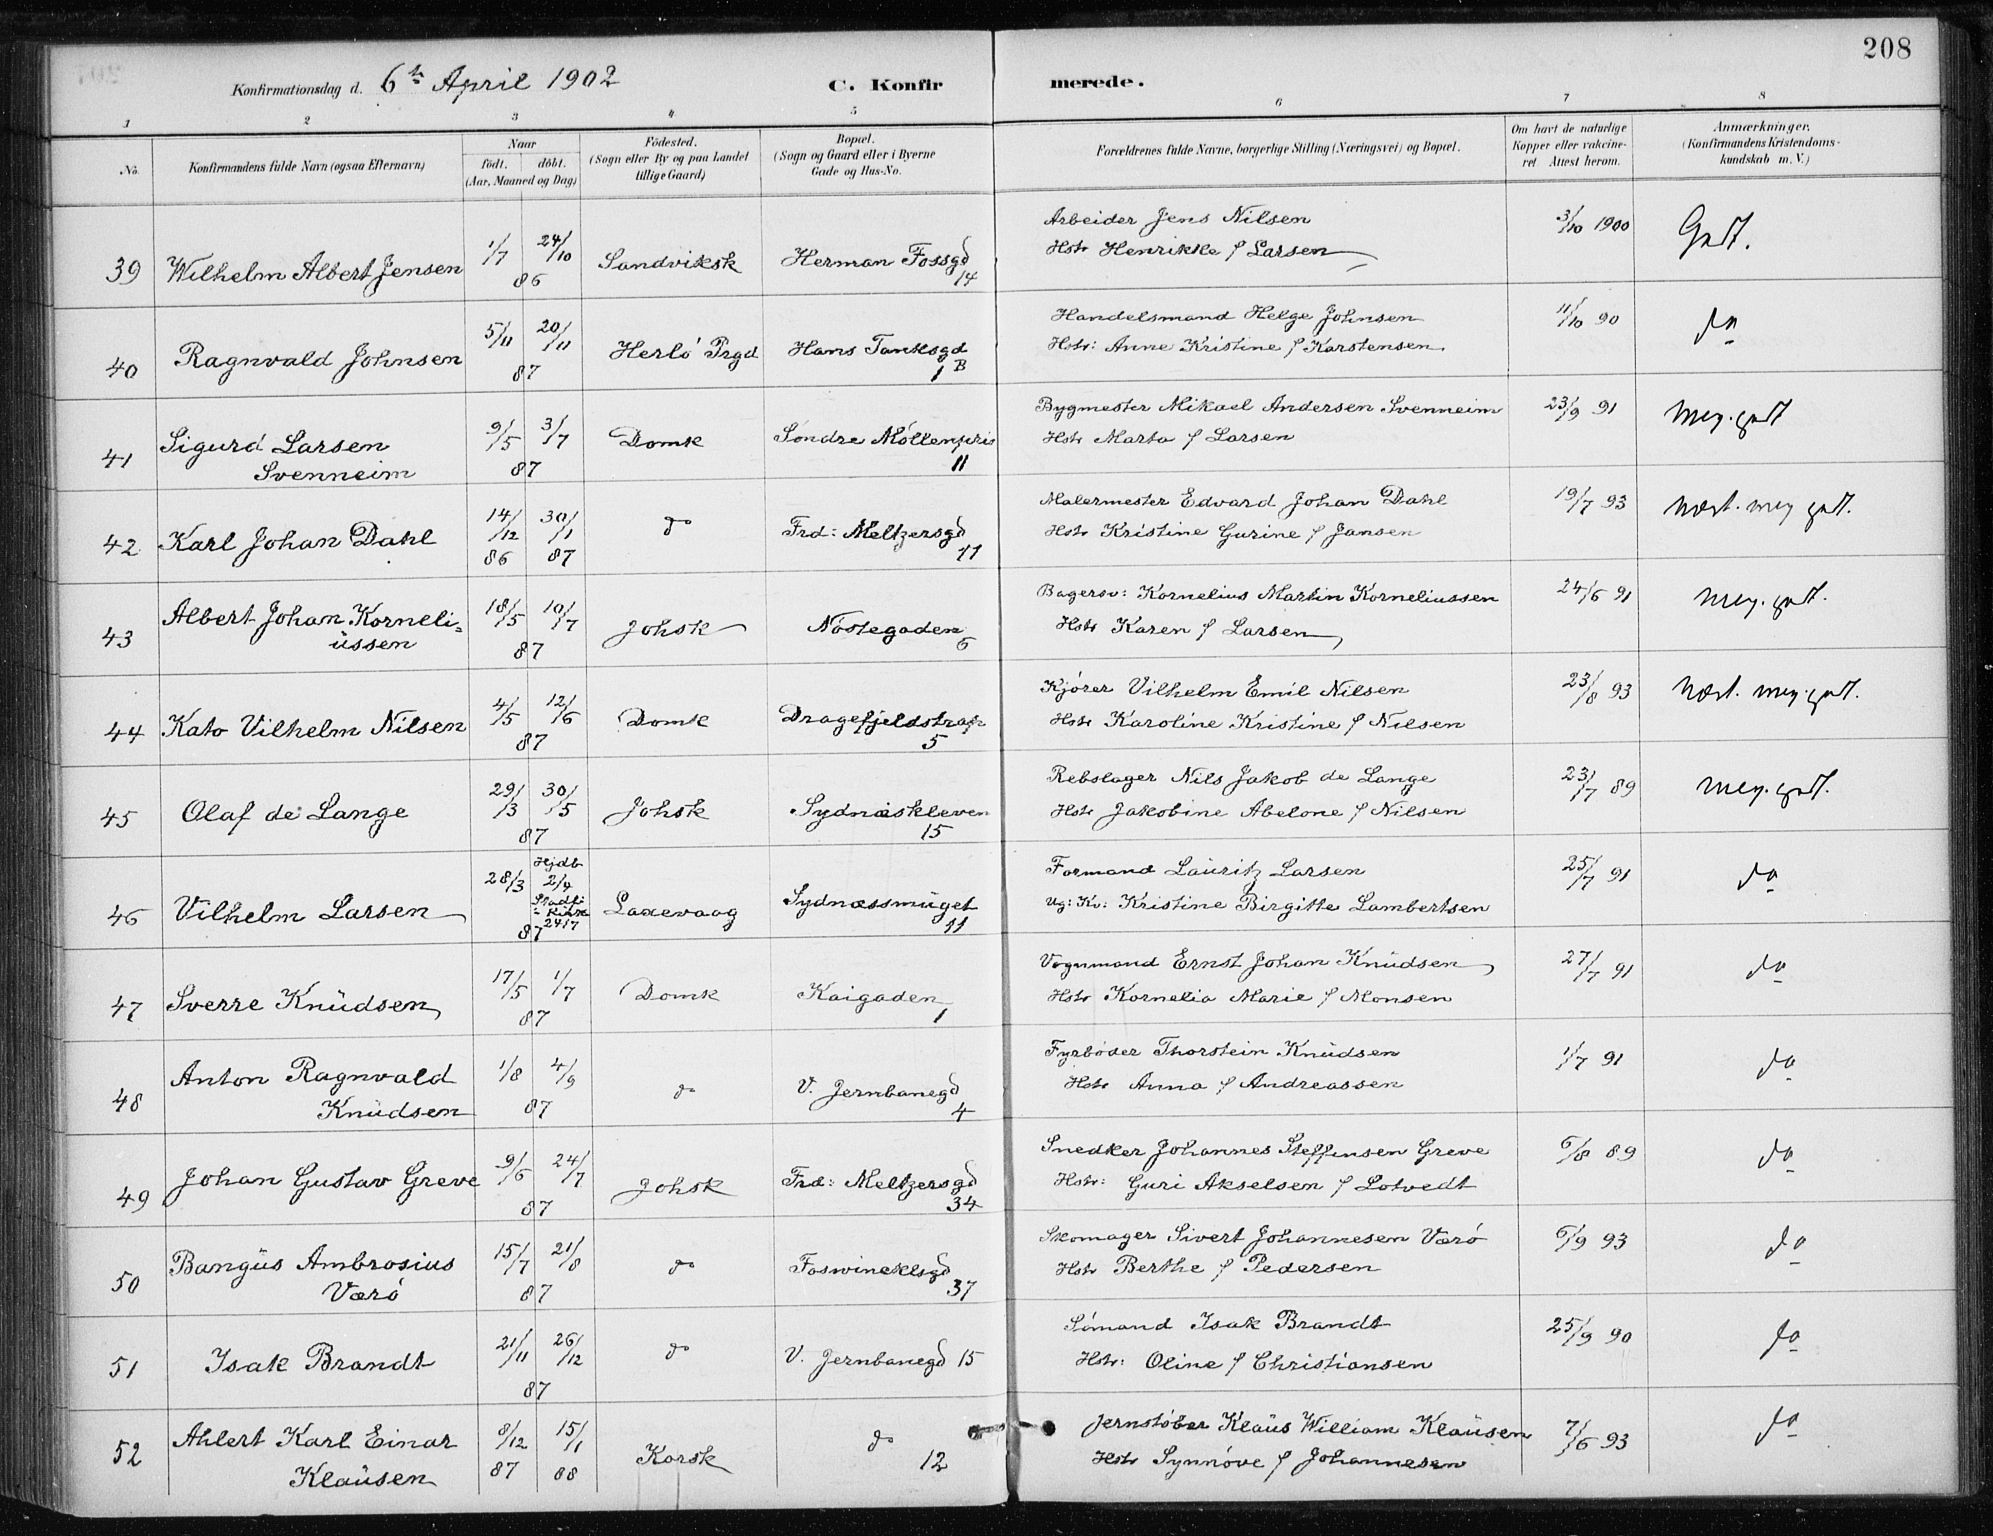 208
Konfirmationsdag d. 6te April 1902 C. Konfirmerede.
1 2 3 4 5 6 7 8
No. Konfirmandens fulde Navn (ogsaa Efternavn) Naar født. døbt. (Aar, Maaned og Dag) Fødested. (Sogn eller By og paa Landet tillige Gaard) Bopæl. (Sogn og Gaard eller i Byerne Gade og Hus-No. Forældrenes fulde Navne, borgerlige Stilling (Næringsvei) og Bopæl. Om havt de naturlige Kopper eller vakcineret Attest herom. Anmærkninger. (Konfirmandens Kristendomskundskab m. V.)
39 Wilhelm Albert Jensen 1/7 24/10 86 Sandviksk Herman Fossgd 14 Arbeider Jens Nilsen 3/10 1900 Godt.
Hstr Henrikke f Larsen
40 Ragnvald Johnsen 5/11 20/11 87 Herlö Prgd Hans Tanksgd 1 B Handelsmand Helge Johnsen 11/10 90 do
Hstr: Anne Kristine f Karstensen
41 Sigurd Larsen Svenneim 9/5 3/7 87 Domk Söndre Möllenpris 11 Bygmester Mikael Andersen Svenneim 23/9 91 Meg. godt
Hstr Marta f Larsen
42 Karl Johan Dahl 14/12 86 30/1 87 do Frd: Meltzersgd 11 Malermester Edvard Johan Dahl 19/7 93 Næst. meg godt.
Hstr Kristine Gurine f Jansen
43 Albert Johan Korneliüssen 18/5 10/7 87 Johsk Nöstegaden 6 Bagersv: Kornelius Martin Korneliussen 24/6 91 Meg. godt.
Hstr Karen f Larsen
44 Kato Vilhelm Nilsen 4/5 12/6 87 Domk Dragefjeldstrap 5 Kjörer Vilhelm Emil Nilsen 23/8 93 Næst. meg. godt.
Hstr Karoline Kristine f Nilsen
45 Olaf de Lange 29/3 30/5 87 Johsk Sydnæskleven 15 Rebslager Nils Jakob de Lange 23/7 89 Meg. godt.
Hstr Jakobine Abelone f Nilsen
46 Vilhelm Larsen 28/3 Hjdb 2/4 Stadf: i Kirke 24/7 87 Laxevaag Sydnæssmüget 11 Formand Laüritz Larsen 25/7 91 do
Ug: Kv: Kristine Birgitte Lambertsen
47 Sverre Knüdsen 17/5 1/7 87 Domk Kaigaden 1 Vognmand Ernst Johan Knüdsen 27/7 91 do
Hstr Kornelia Marie f Monsen
48 Anton Ragnvald Knüdsen 1/8 4/9 87 do V. Jernbanegd 4 Fyrböder Thorstein Knüdsen 1/7 91 do
Hstr Anna f Andreassen
49 Johan Gustav Greve 9/6 24/7 87 Johsk Frd: Meltzersgd 34 Snedker Johannes Steffensen Greve 6/8 89 do
Hstr: Guri Akselsen f Lotvedt
50 Bangüs Ambrosius Værö 15/7 21/8 87 do Foswinckelsgd 37 Skomager Sivert Johannesen Værö 6/9 93 do
Hstr Berthe f Pedersen
51 Isak Brandt 21/11 26/12 87 do V. Jernbanegd 15 Sömand Isak Brandt 25/9 90 do
Hstr: Oline f Christiansen
52 Ahlert Karl Einar Klaüsen 8/12 87 15/1 88 Korsk do 12 Jernstöber Klaüs William Klaüsen 7/6 93 do
Hstr Synnöve f Johannesen